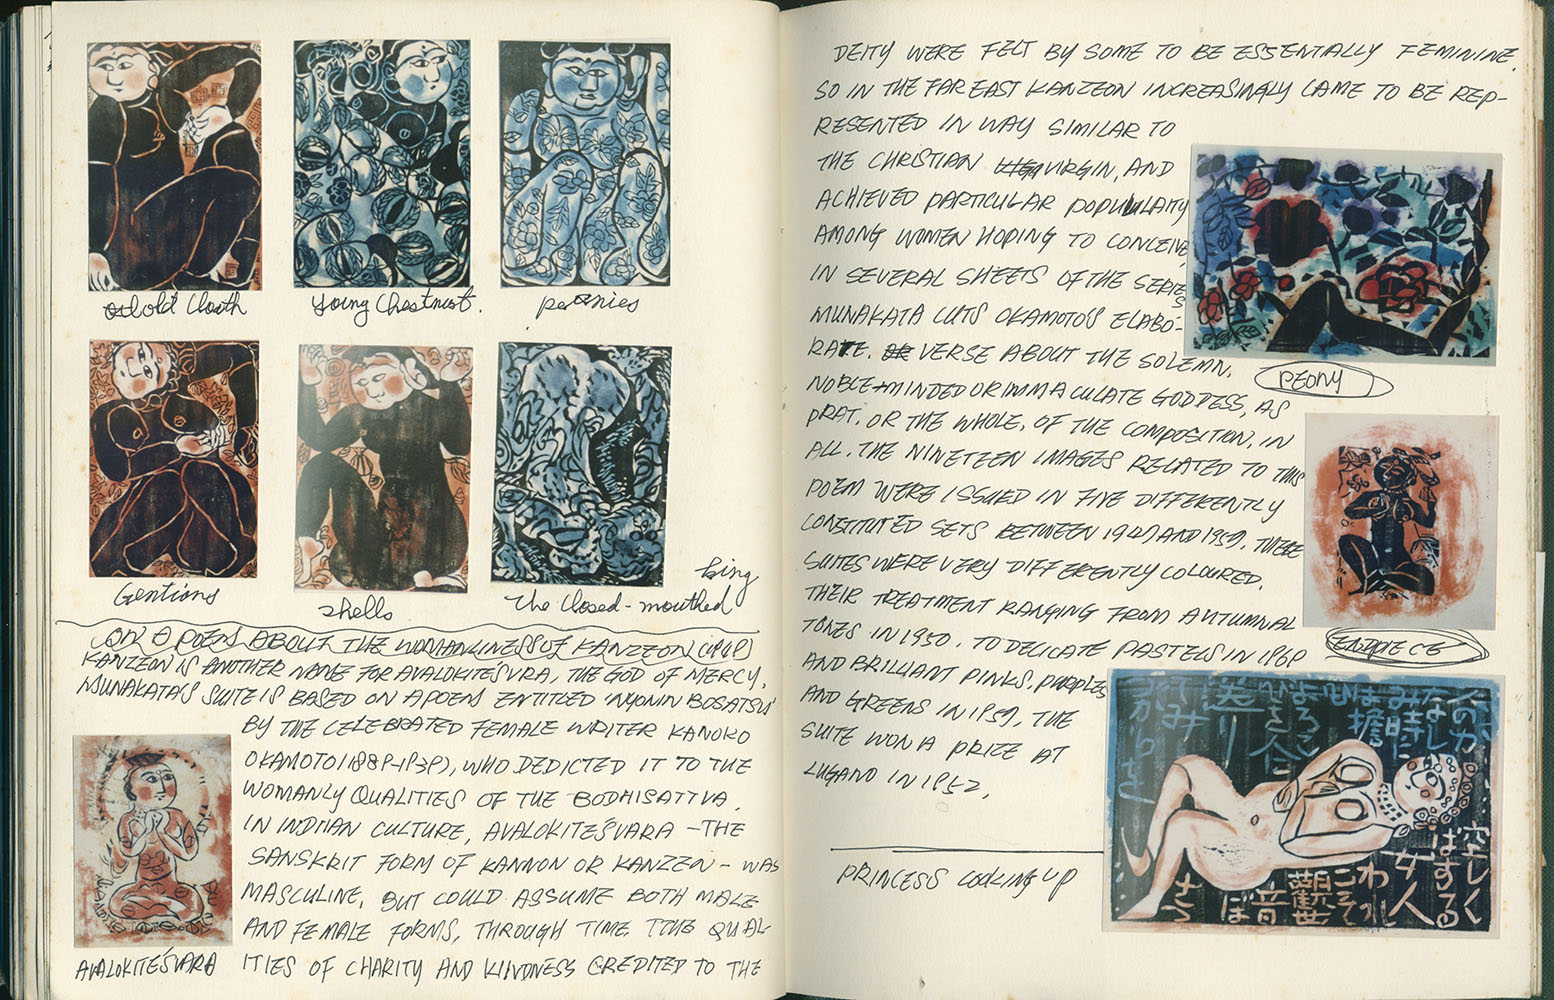 old cloath
young Chestnust.
peonies
Gentions
shells
The Closed-mouthed
king
ON A POEM ABOUT THE WOMANLINESS OF KANZEON (1949)
KANZEON IS ANOTHER NAME FOR AVALOKITEŚVRA, THE GOD OF MERCY.
MUNAKATA'S SUITE IS BASED ON A POEM ENTITLED 'NYONIN BOSATSU'
BY THE CELEBRATED FEMALE WRITER KANOKO
OKAMOTO (1889-1939), WHO DEDICTED IT TO THE
WOMANLY QUALITIES OF THE BODHISATTVA.
IN INDIIAN CULTURE, AVALOKITEŚVARA - THE
SANSKRIT FORM OF KANNON OR KANZEN - WAS
MASCULINE, BUT COULD ASSUME BOTH MALE
AND FEMALE FORMS, THROUGH TIME THE QUAL-
ITIES OF CHARITY AND KIINDNESS CREDITED TO THE
AVALOKITEŚVARA
DEITY WERE FELT BY SOME TO BE ESSENTIALLY FEMININE.
SO IN THE FAR EAST KANZEON INCREASINGLY CAME TO BE REP-
RESENTED IN WAY SIMILAR TO
THE CHRISTIAN VIRGIN, AND
ACHIEVED PARTICULAR POPULAITY
AMONG WOMEN HOPING TO CONCEIVE
IN SEVERAL SHEETS OF THE SERIES
MUNAKATA CUTS OKAMOTO'S ELABO-
RATE. VERSE ABOUT THE SOLEMN,
NOBLE-MINDED OR IMMACULATE GODDESS, AS
PRAT, OR THE WHOLE, OF THE COMPOSITION, IN
ALL, THE NINETEEN IMAGES RELATED TO THIS
POEM WERE ISSUED IN FIVE DIFFERENTLY
CONSTITUTED SETS BETWEEN 1949 AND 1959. THESE
SUITES WERE VERY DIFFERENTLY COLOURED,
THEIR TREATMENT RANGING FROM AUTUMNAL
TONES IN 1950. TO DELICATE PASTELS IN 1960
AND BRILLIANT PINKS, PURPLES
AND GREENS IN 1959, THE
SUITE WON A PRIZE AT
LUGANO IN 1952,
PEONY
ENDPIECE
PRINCESS LOOKING UP
空しく
はする
女人
われ
こそ
観世
音
には